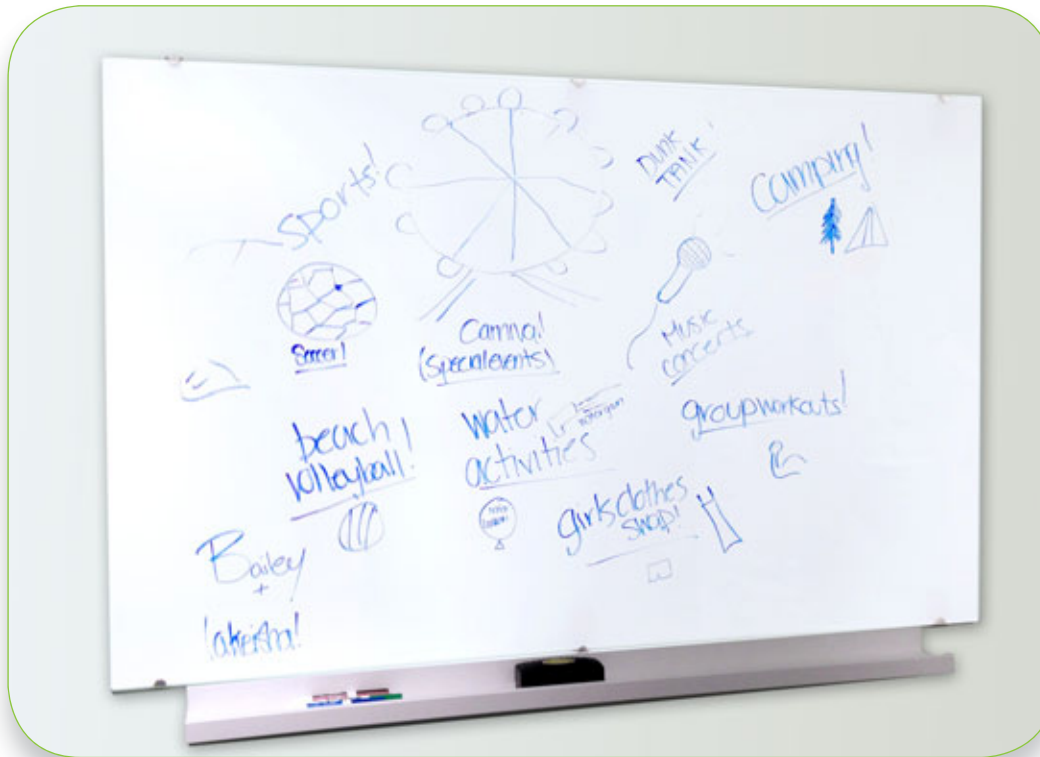 sports!
DUNK
TANK!
camping!
Soccer!
(special events)
MUSIC
concerts
beach
volleyball!
water
activities
group workouts!
girls clothes
swap!
Bailey
+
lakeisha!